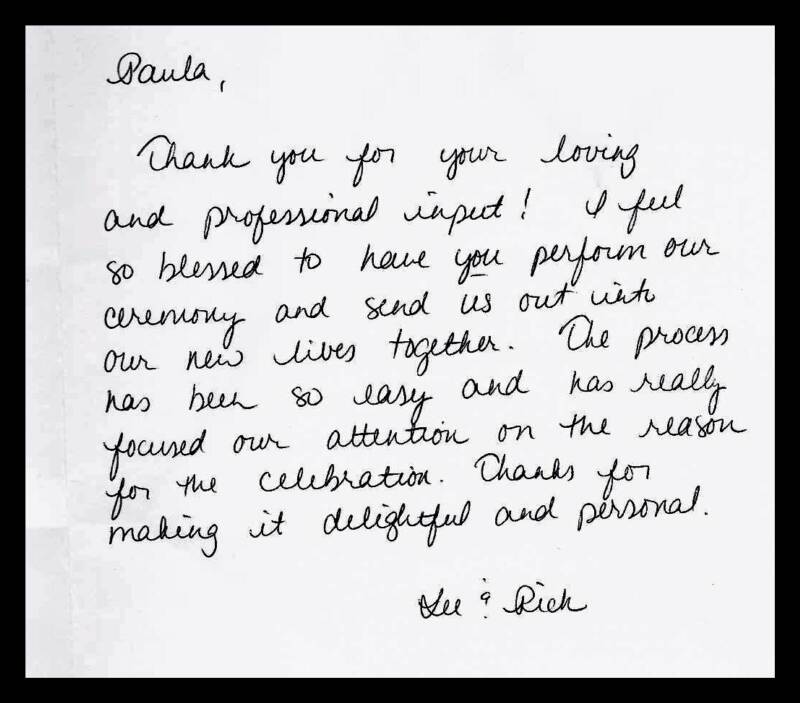 Paula,
Thank you for your loving
and professional input! I feel
so blessed to have you perform our
ceremony and send us out into
our new lives together. The process
has been so easy and has really
focused our attention on the reason
for the celebration. Thanks for
making it delightful and personal.
Lee & Rich